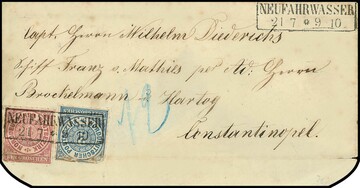 NEUFAHRWASSER
21 7 * 9 10.
Capt. Herrn Wilhelm Diederichs
Schiff Franz v. Mathies per Ad. Herrn
Brockelmann & Hartog
Constantinopel.
12
NEUFAHRWASSER
21 7